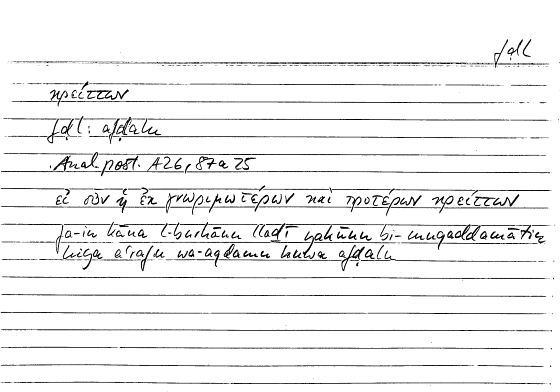 fḍl
κρείττων
fḍl: afḍalu
Anal. post. A26, 87a25
εἰ οὖν ἡ ἐκ γνωριμωτέρων καὶ προτέρων κρείττων
fa-in kāna l-burhānu lladī yakūnu bi-muqaddamātin
hiya a'rafu wa-aqdamu huwa afḍalu